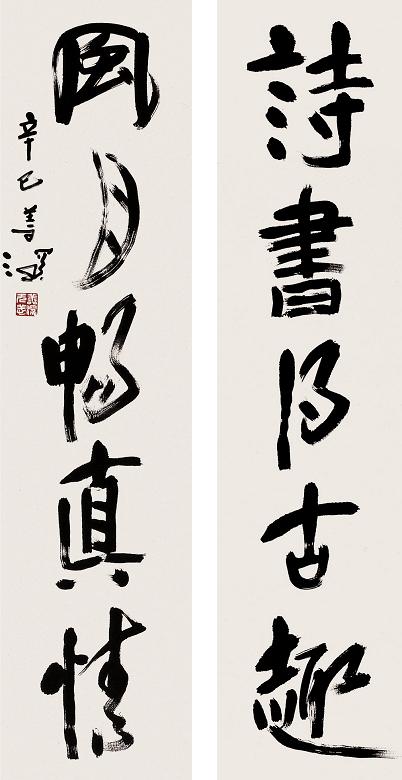 詩書得古趣
風月暢真情
辛巳